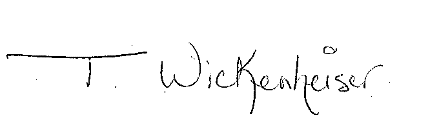 T. Wickenheiser